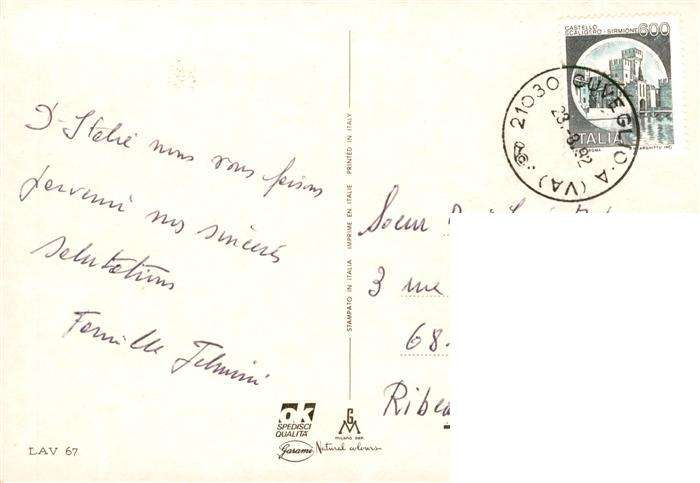 D'Italie nous vous faisons
parvenir nos sincères
salutations
Famille
LAV 67
STAMPATO IN ITALIA IMPRIME EN ITALIE PRINTED IN ITALY
ok
SPEDISCI
QUALITÀ
GM
MILANO
Garami Natural colours
CASTELLO
SCALIGERO - SIRMIONE
600
ITALIA
ROMA
21030 CUVEGLIO · A (VA)
Soeur
3 rue
68.
Ribea